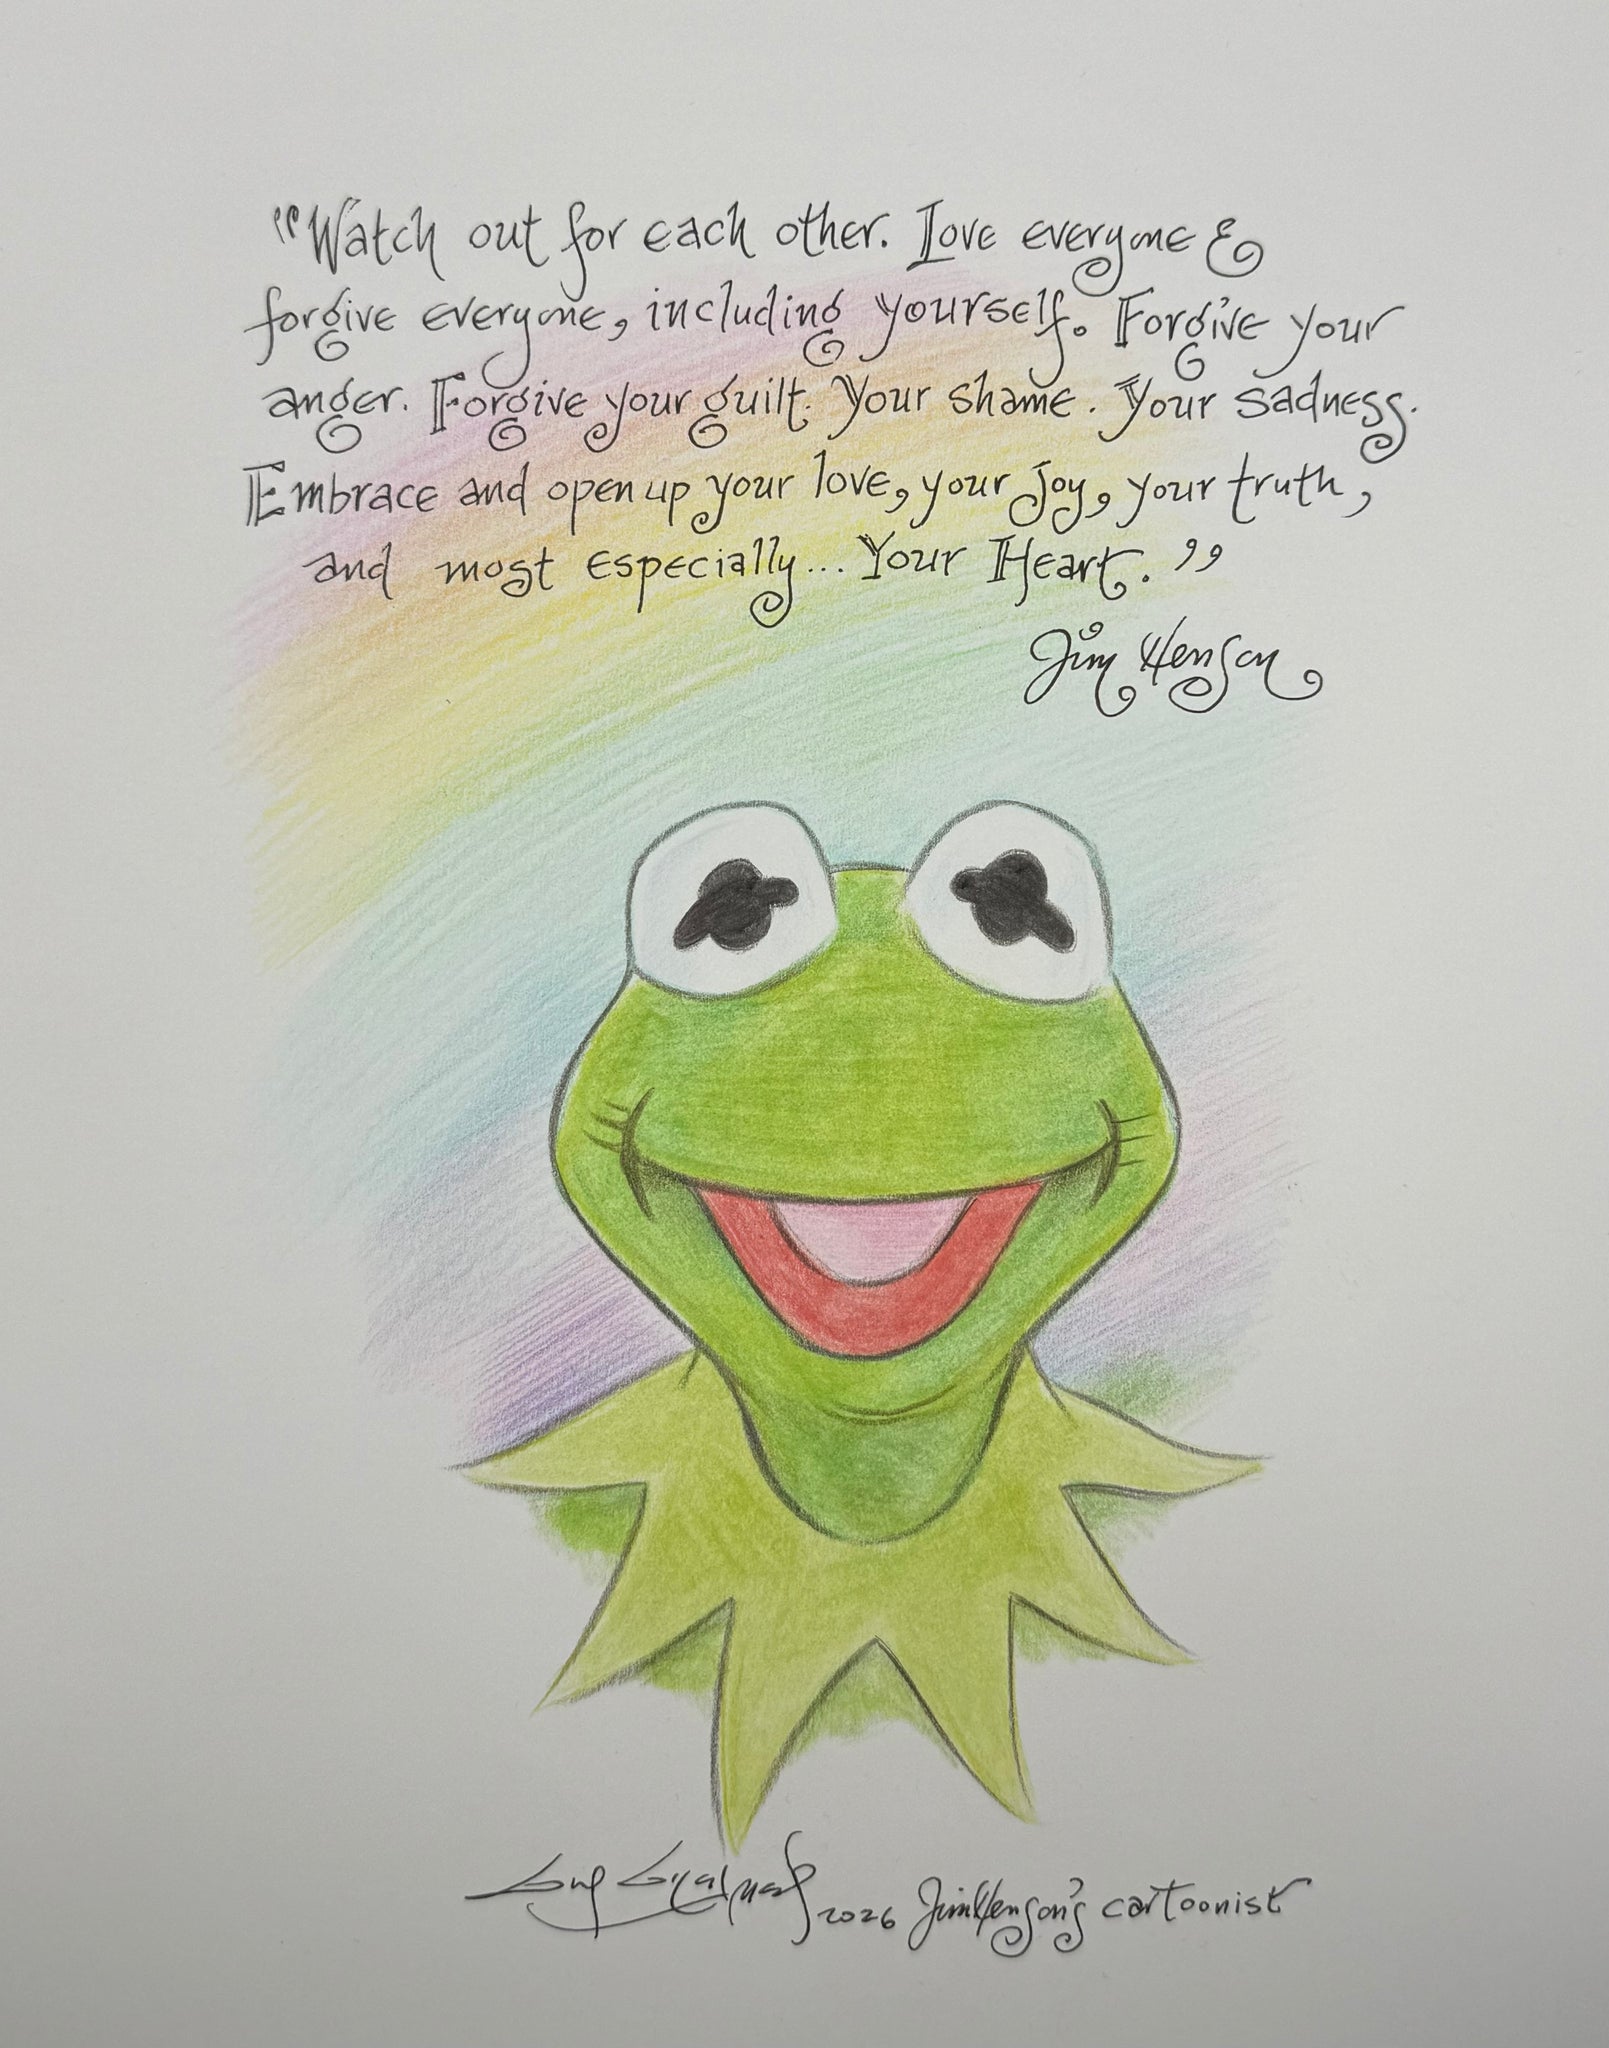 "Watch out for each other. Love everyone &
forgive everyone, including yourself. Forgive your
anger. Forgive your guilt. Your shame. Your sadness.
Embrace and open up your love, your joy, your truth,
and most especially... Your Heart."
Jim Henson
2026 Jim Henson's cartoonist